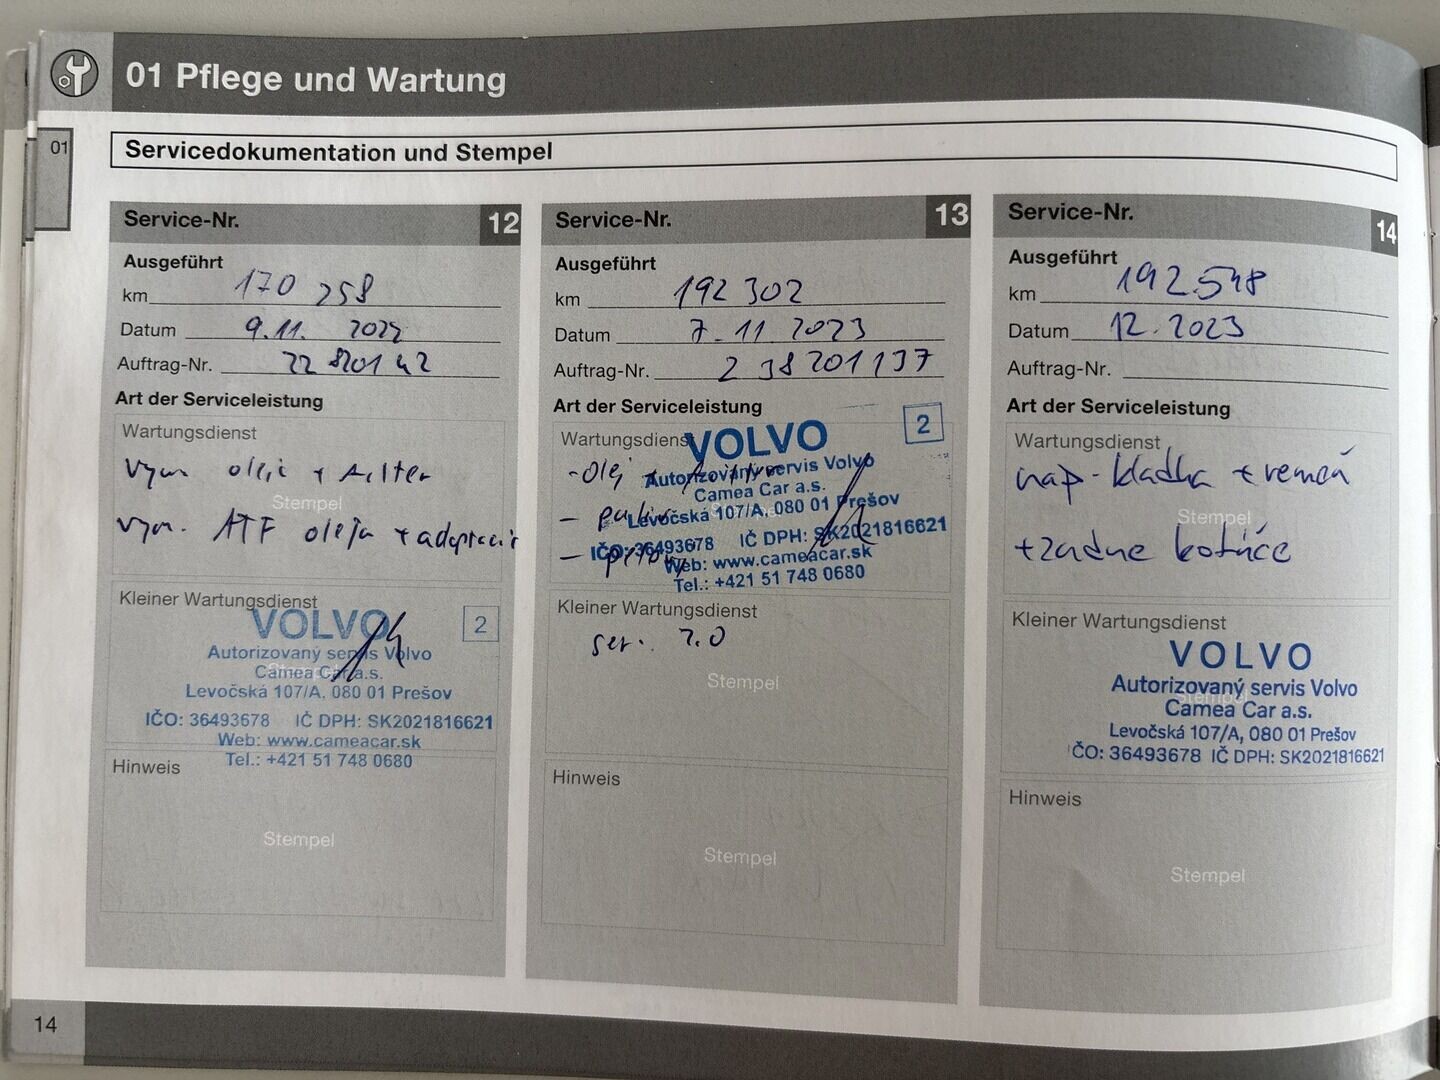 01 Pflege und Wartung
01
Servicedokumentation und Stempel
Service-Nr. 12
Ausgeführt
km 170 258
Datum 9.11. 2022
Auftrag-Nr. 22 8201 42
Art der Serviceleistung
Wartungsdienst
vym olej + filter
Stempel
vym. ATF oleja + adaptacie
Kleiner Wartungsdienst
VOLVO 2
Autorizovaný servis Volvo
Camea Car a.s.
Levočská 107/A, 080 01 Prešov
IČO: 36493678 IČ DPH: SK2021816621
Web: www.cameacar.sk
Tel.: +421 51 748 0680
Hinweis
Stempel
Service-Nr. 13
Ausgeführt
km 192 302
Datum 7.11 2023
Auftrag-Nr. 2 38201137
Art der Serviceleistung
Wartungsdienst
VOLVO 2
- olej +
Autorizovaný servis Volvo
Camea Car a.s.
Levočská 107/A, 080 01 Prešov
IČO: 36493678 IČ DPH: SK2021816621
Web: www.cameacar.sk
Tel.: +421 51 748 0680
Kleiner Wartungsdienst
ser. 7.0
Stempel
Hinweis
Stempel
Service-Nr. 14
Ausgeführt
km 192.548
Datum 12.2023
Auftrag-Nr.
Art der Serviceleistung
Wartungsdienst
nap. kladka + remeň
Stempel
+ zadne kotúče
Kleiner Wartungsdienst
VOLVO
Autorizovaný servis Volvo
Stempel
Camea Car a.s.
Levočská 107/A, 080 01 Prešov
IČO: 36493678 IČ DPH: SK2021816621
Hinweis
Stempel
14